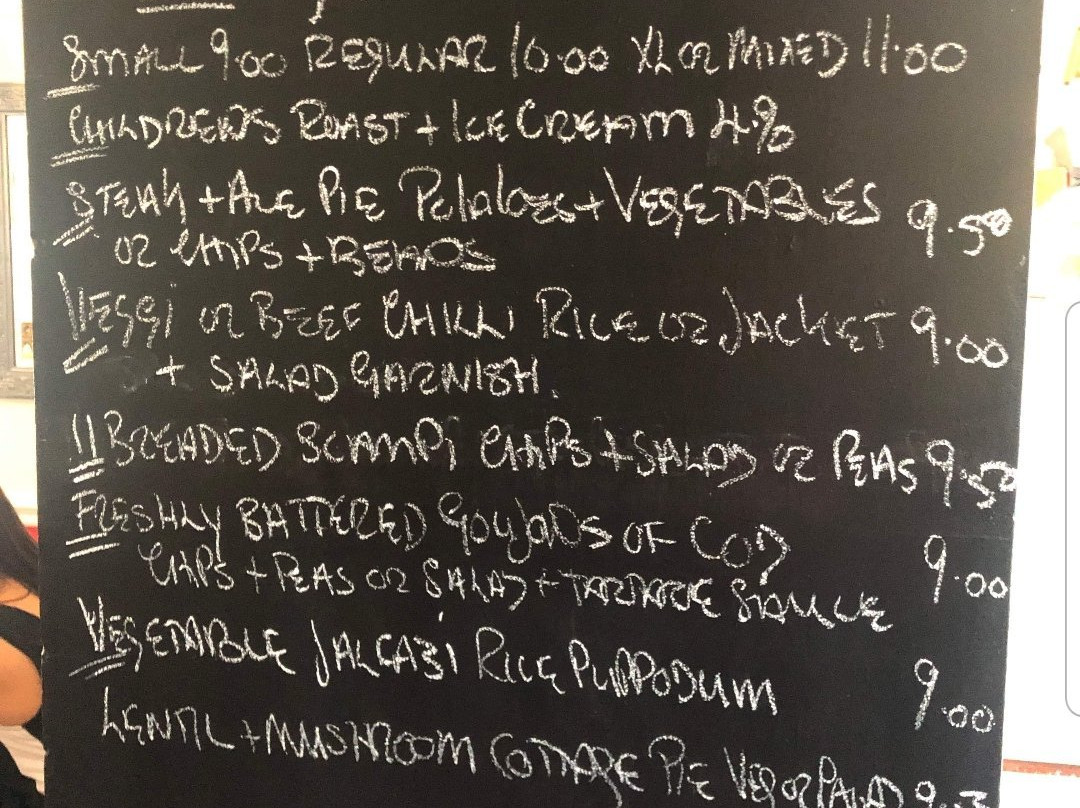 SMALL 9.00 REGULAR 10.00 XL OR MIXED 11.00
CHILDRENS ROAST + ICE CREAM 4.90
STEAK + ALE PIE Potatoes + VEGETABLES 9.50
OR CHIPS + BEANS
VEGGI OR BEEF CHILLI RICE OR JACKET 9.00
+ SALAD GARNISH.
11 BREADED SCAMPI CHIPS + SALAD OR PEAS 9.50
FRESHLY BATTERED GOUJONS OF COD 9.00
CHIPS + PEAS OR SALAD + TARTARE SAUCE
VEGETABLE JALFAZI RICE PUPPODUM 9.00
LENTIL + MUSHROOM COTTAGE PIE VEG OR